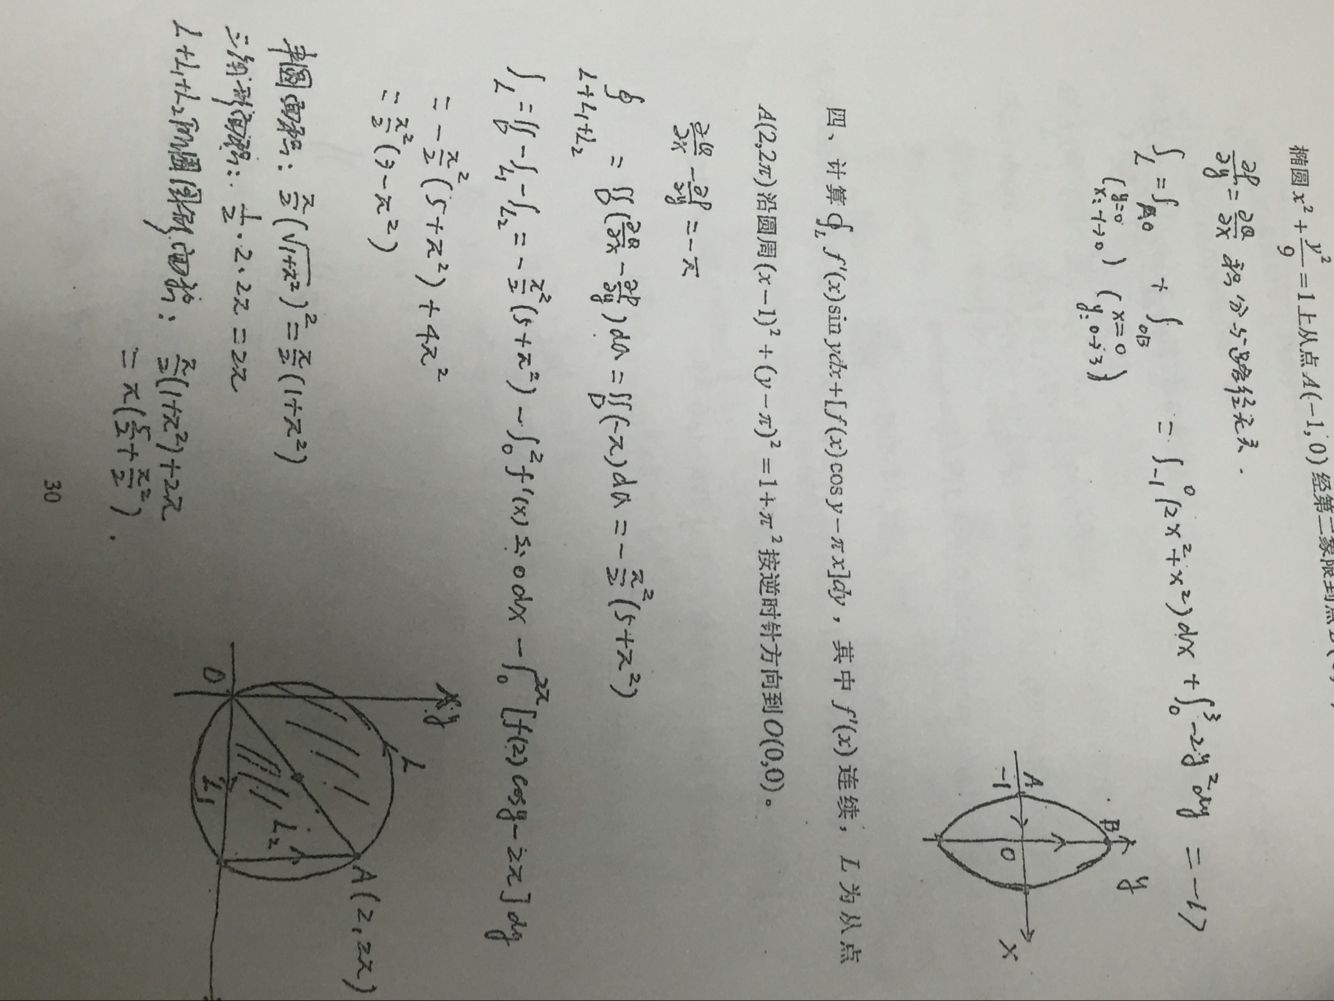 椭圆 x² + y²/9 = 1上从点 A(-1,0) 经第二象限到点
∂P/∂y = ∂Q/∂x 积分与路径无关.
∫_L = ∫_AO + ∫_OB = ∫_{-1}^0 (2x²+x²)dx + ∫_0^3 -2y²dy = -17
(y=0 x:-1→0) (x=0 y:0→3)
A B O -1 x y
四、计算 ∮_L f'(x)sin ydx+[f(x)cos y-πx]dy，其中 f'(x) 连续，L 为从点
A(2,2π)沿圆周(x-1)²+(y-π)²=1+π²按逆时针方向到O(0,0)。
∂Q/∂x - ∂P/∂y = -π
∮_{L+L₁+L₂} = ∬_D (∂Q/∂x - ∂P/∂y)dσ = ∬_D (-π)dσ = -π²/2(5+π²)
∫_L = ∬_D - ∫_{L₁} - ∫_{L₂} = -π²/2(5+π²) - ∫_0^2 f'(x) sin 0 dx - ∫_0^{2π} [f(2) cos y - 2π] dy
= -π²/2(5+π²) + 4π²
= π²/2(3-π²)
半圆面积: π/2(√(1+π²))² = π/2(1+π²)
三角形面积: 1/2·2·2π = 2π
L+L₁+L₂所围图形面积: π/2(1+π²)+2π
= π(5/2+π²/2).
O y L L₁ L₂ A(2,2π)
30